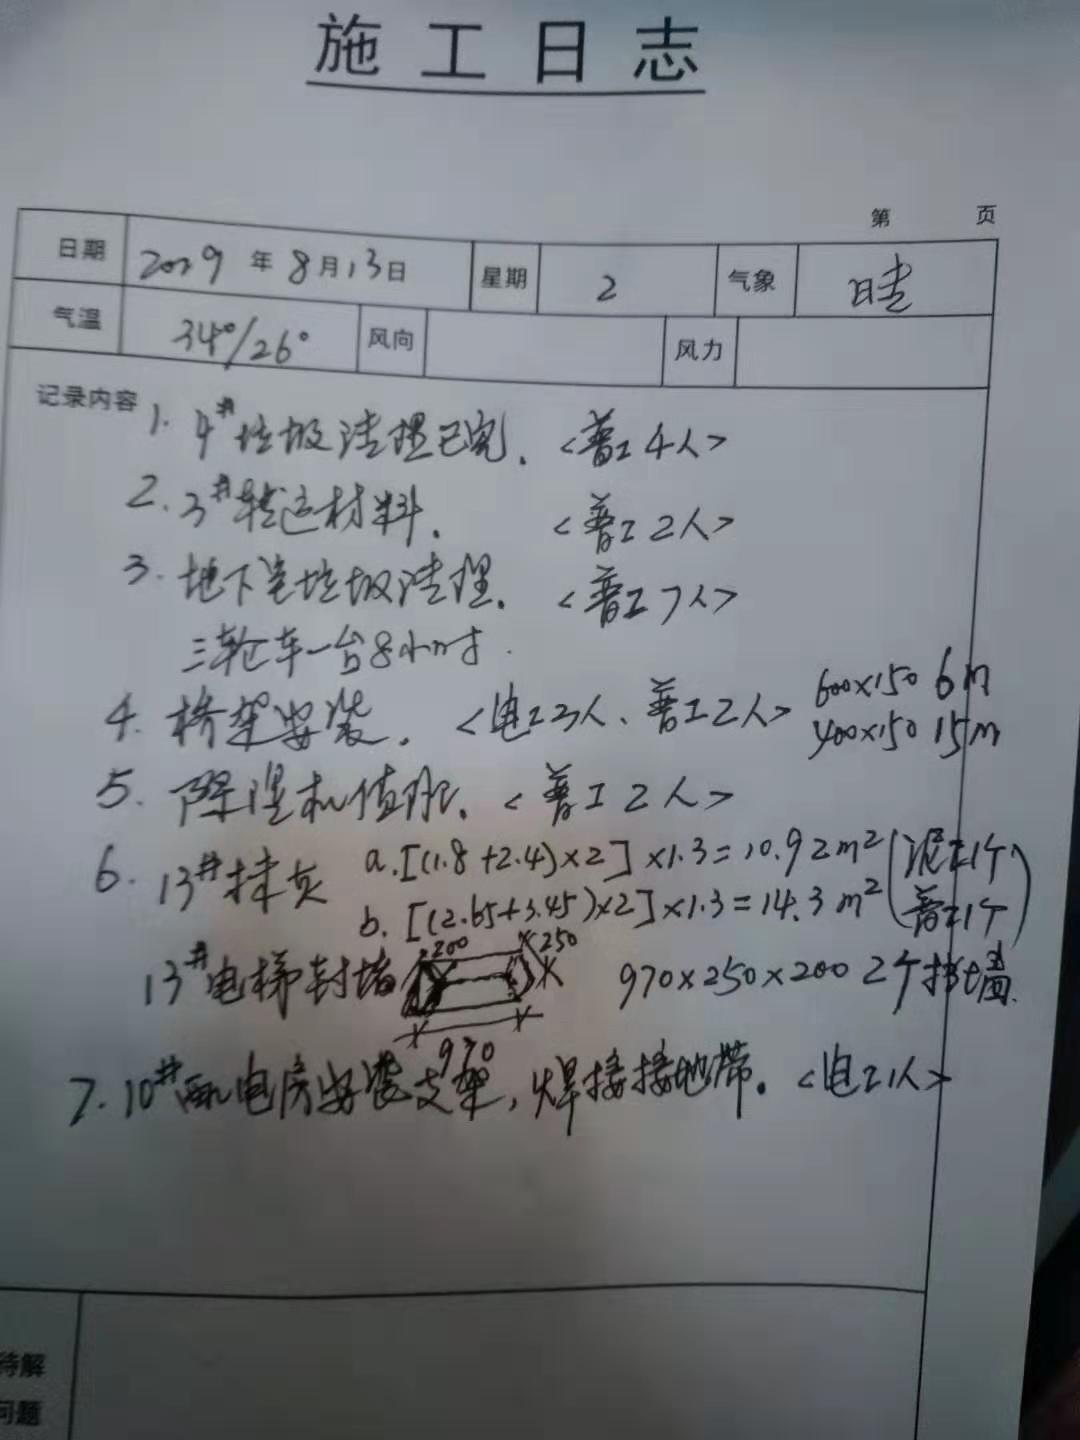 施工日志
第 页
日期 2019 年 8 月 13 日 星期 2 气象 晴
气温 34°/26° 风向 风力
记录内容
1. 4#垃圾清理已完. <普工4人>
2. 3#转运材料. <普工2人>
3. 地下室垃圾清理. <普工7人>
三轮车一台8小时.
4. 桥架安装. <电工3人、普工2人> 600×150 6m
400×150 15m
5. 除湿机值班. <普工2人>
6. 13#抹灰 a.[(1.8+2.4)×2]×1.3=10.92m² (泥工1个
b.[(2.65+3.45)×2]×1.3=14.3m² 普工1个)
200 250
13#电梯封堵 970×250×200 2个
970
7. 10#配电房安装支架,焊接接地带. <电工1人>
待解
问题